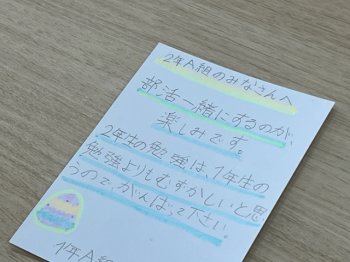 2年A組のみなさんへ
部活一緒にするのが、
楽しみです。
2年生の勉強は、1年生の
勉強よりもむずかしいと思
うので、がんばって下さい。
1年A組